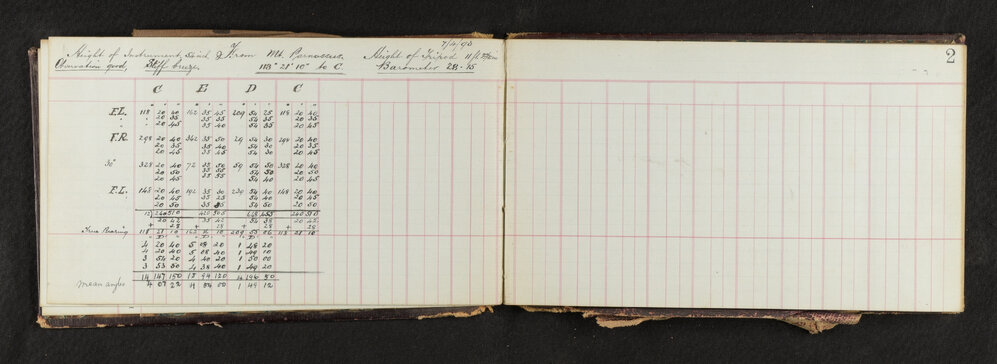 7/4/93
Height of Instrument, From Mt. Parnassus. Height of Tripod
Observation good, Stiff breeze 118° 21' 10" to C Barometer 28.15
2
C E D C
F.L. 118 20 40 162 35 45 209 54 25 118 20 40
" 20 35 35 35 54 35 20 35
" 20 45 35 40 54 35 20 45
F.R. 298 20 40 342 35 50 29 54 30 298 20 40
20 35 35 40 54 30 20 35
20 45 35 45 54 30 20 45
30° 328 20 40 72 35 50 59 54 50 328 20 40
20 50 35 50 54 50 20 50
20 45 35 55 54 40 20 45
F.L. 148 20 40 192 35 30 239 54 40 148 20 40
20 45 35 25 54 40 20 50
20 50 54 50 20 50
12 240 510 420 505 648 455 240 510
20 42 35 42 54 38 20 42
+ 28 + 28 + 28 + 28
True Bearing 118 21 10 162 36 10 209 55 06 118 21 10
4 20 40 5 08 20 1 48 20
4 20 40 5 08 40 1 49 10
3 54 20 4 40 20 1 50 00
3 53 50 4 38 40 1 49 20
14 147 150 18 94 120 4 196 50
Mean angles 4 07 22 4 54 00 1 49 12